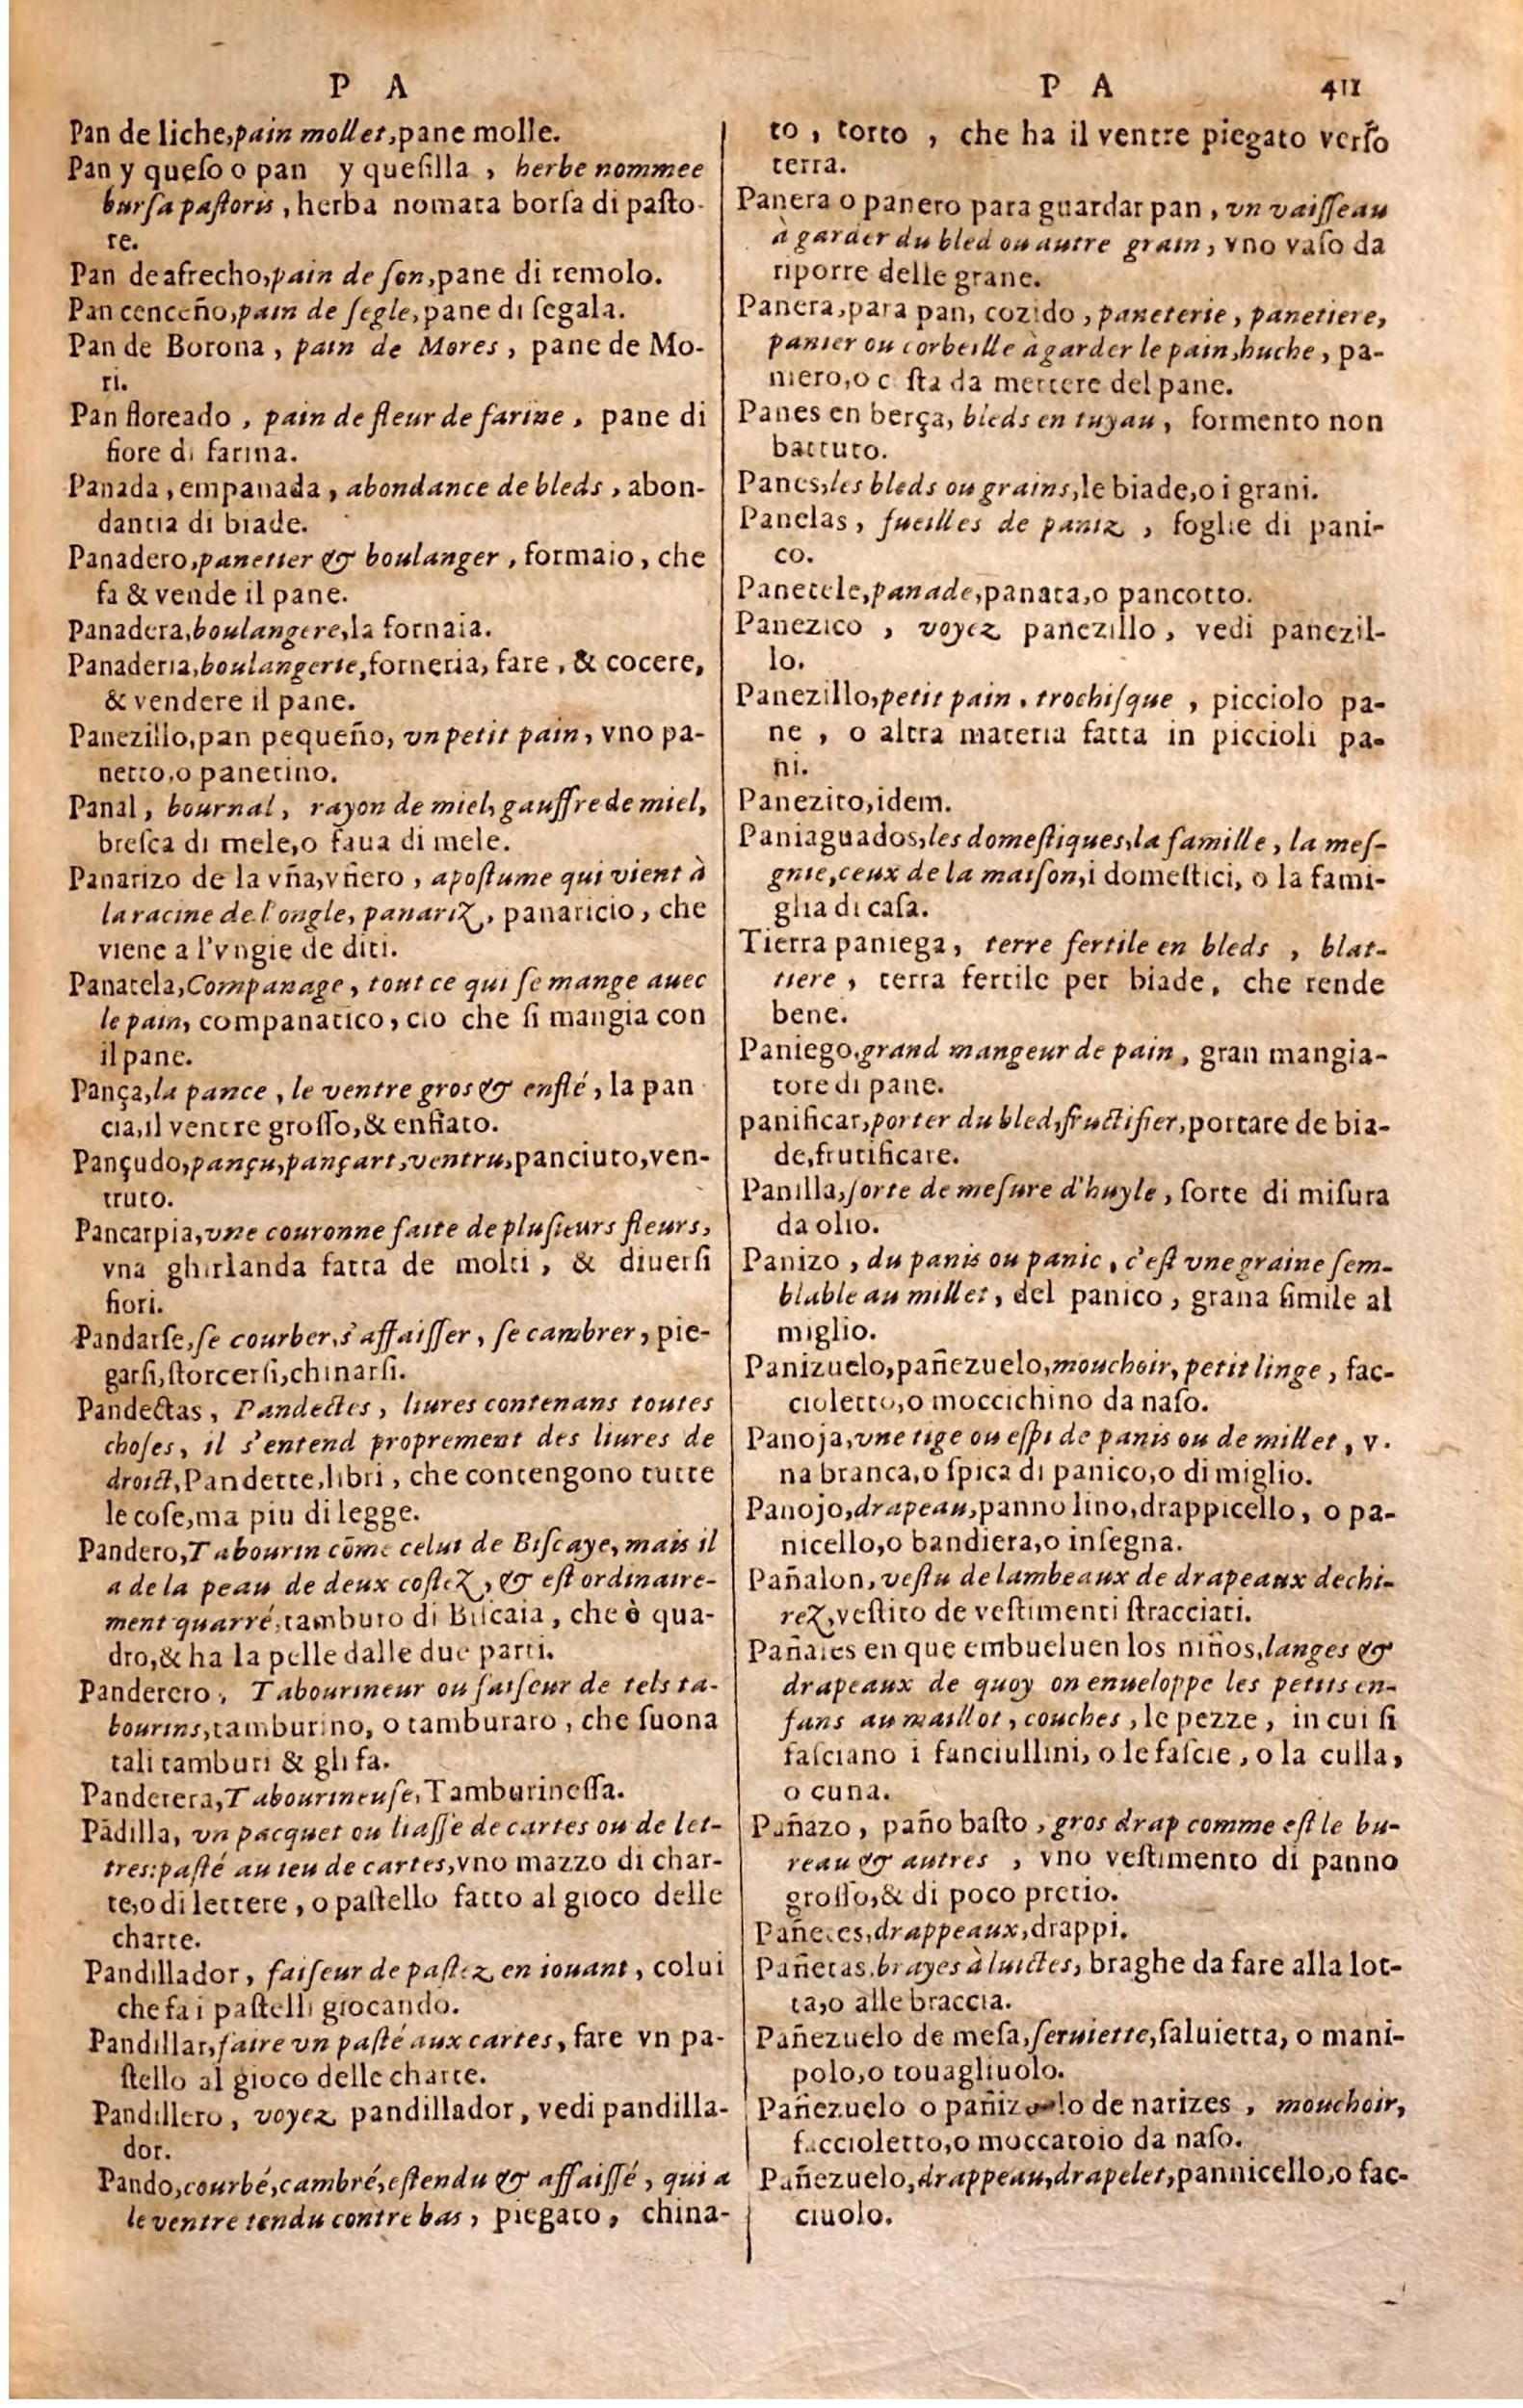 P A
Pan de liche,pain mollet,pane molle.
Pan y queſo o pan y queſilla , herbe nommee
burſa paſtoris , herba nomata borſa di paſto-
re.
Pan de afrecho,pain de ſon,pane di remolo.
Pan cenceño,pain de ſegle,pane di ſegala.
Pan de Borona , pain de Mores , pane de Mo-
ri.
Pan floreado , pain de fleur de farine , pane di
fiore di farina.
Panada , empanada , abondance de bleds , abon-
dantia di biade.
Panadero,panetier & boulanger , formaio , che
fa & vende il pane.
Panadera,boulangere,la fornaia.
Panaderia,boulangerie,forneria, fare , & cocere,
& vendere il pane.
Panezillo,pan pequeño, vn petit pain, vno pa-
netto,o panetino.
Panal , bournal , rayon de miel, gauffre de miel,
breſca di mele,o faua di mele.
Panarizo de la vña,vñero , apoſtume qui vient à
la racine de l'ongle, panariz, panaricio, che
viene a l'vngie de diti.
Panatela,Companage , tout ce qui ſe mange auec
le pain, companatico, cio che ſi mangia con
il pane.
Pança,la pance , le ventre gros & enflé , la pan
cia,il ventre groſſo,& enfiato.
Pançudo,pançu,pançart,ventru,panciuto,ven-
truto.
Pancarpia,vne couronne faite de pluſieurs fleurs,
vna ghirlanda fatta de molti , & diuerſi
fiori.
Pandarſe,ſe courber,s'affaiſſer , ſe cambrer , pie-
garſi,ſtorcerſi,chinarſi.
Pandectas , Pandectes , liures contenans toutes
choſes, il s'entend proprement des liures de
droict,Pandette,libri , che contengono tutte
le coſe,ma piu di legge.
Pandero,Tabourin cōme celui de Biſcaye, mais il
a de la peau de deux coſtez, & eſt ordinaire-
ment quarré,tamburo di Biſcaia , che ò qua-
dro,& ha la pelle dalle due parti.
Panderero , Tabourineur ou faiſeur de tels ta-
bourins,tamburino, o tamburaro , che ſuona
tali tamburi & gli fa.
Panderera,Tabourineuſe,Tamburineſſa.
Pādilla, vn pacquet ou liaſſe de cartes ou de let-
tres:paſté au ieu de cartes,vno mazzo di char-
te,o di lettere , o paſtello fatto al gioco delle
charte.
Pandillador , faiſeur de paſtez en iouant , colui
che fa i paſtelli giocando.
Pandillar,faire vn paſté aux cartes, fare vn pa-
ſtello al gioco delle charte.
Pandillero , voyez pandillador , vedi pandilla-
dor.
Pando,courbé,cambré,eſtendu & affaiſſé , qui a
le ventre tendu contre bas , piegato, china-
P A 411
to , torto , che ha il ventre piegato verſo
terra.
Panera o panero para guardar pan , vn vaiſſeau
à garder du bled ou autre grain , vno vaſo da
riporre delle grane.
Panera,para pan, cozido , paneterie , panetiere,
panier ou corbeille à garder le pain,huche , pa-
niero,o c ſta da mettere del pane.
Panes en berça, bleds en tuyau , formento non
battuto.
Panes,les bleds ou grains,le biade,o i grani.
Panelas , fueilles de paniz , foglie di pani-
co.
Panetele,panade,panata,o pancotto.
Panezico , voyez panezillo , vedi panezil-
lo.
Panezillo,petit pain , trochiſque , picciolo pa-
ne , o altra materia fatta in piccioli pa-
ni.
Panezito,idem.
Paniaguados,les domeſtiques,la famille , la meſ-
gnie,ceux de la maiſon,i domeſtici, o la fami-
glia di caſa.
Tierra paniega , terre fertile en bleds , blat-
tiere , terra fertile per biade , che rende
bene.
Paniego,grand mangeur de pain , gran mangia-
tore di pane.
panificar,porter du bled,fructifier,portare de bia-
de,frutificare.
Panilla,ſorte de meſure d'huyle , ſorte di miſura
da olio.
Panizo , du panis ou panic , c'eſt vne graine ſem-
blable au millet , del panico , grana ſimile al
miglio.
Panizuelo,pañezuelo,mouchoir, petit linge , fac-
cioletto,o moccichino da naſo.
Panoja,vne tige ou eſpi de panis ou de millet , v.
na branca,o ſpica di panico,o di miglio.
Panojo,drapeau,panno lino,drappicello , o pa-
nicello,o bandiera,o inſegna.
Pañalon, veſtu de lambeaux de drapeaux dechi-
rez,veſtito de veſtimenti ſtracciati.
Pañales en que embueluen los niños,langes &
drapeaux de quoy on enueloppe les petits en-
fans au maillot , couches , le pezze , in cui ſi
faſciano i fanciullini, o le faſcie , o la culla,
o cuna.
Pañazo , paño baſto , gros drap comme eſt le bu-
reau & autres , vno veſtimento di panno
groſſo,& di poco pretio.
Pañetes,drappeaux,drappi.
Pañetas,brayes à luictes, braghe da fare alla lot-
ta,o alle braccia.
Pañezuelo de meſa,ſeruiette,ſaluietta, o mani-
polo,o touagliuolo.
Pañezuelo o pañizuelo de narizes , mouchoir,
faccioletto,o moccatoio da naſo.
Pañezuelo,drappeau,drapelet,pannicello,o fac-
ciuolo.